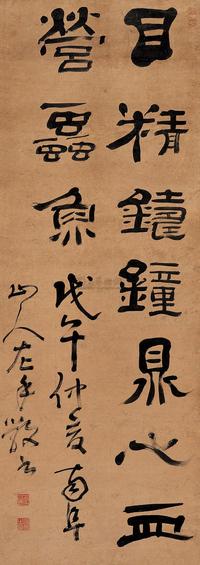 目精鐘鼎心血
營蟲魚
戊午仲夏南阜
山人左手書